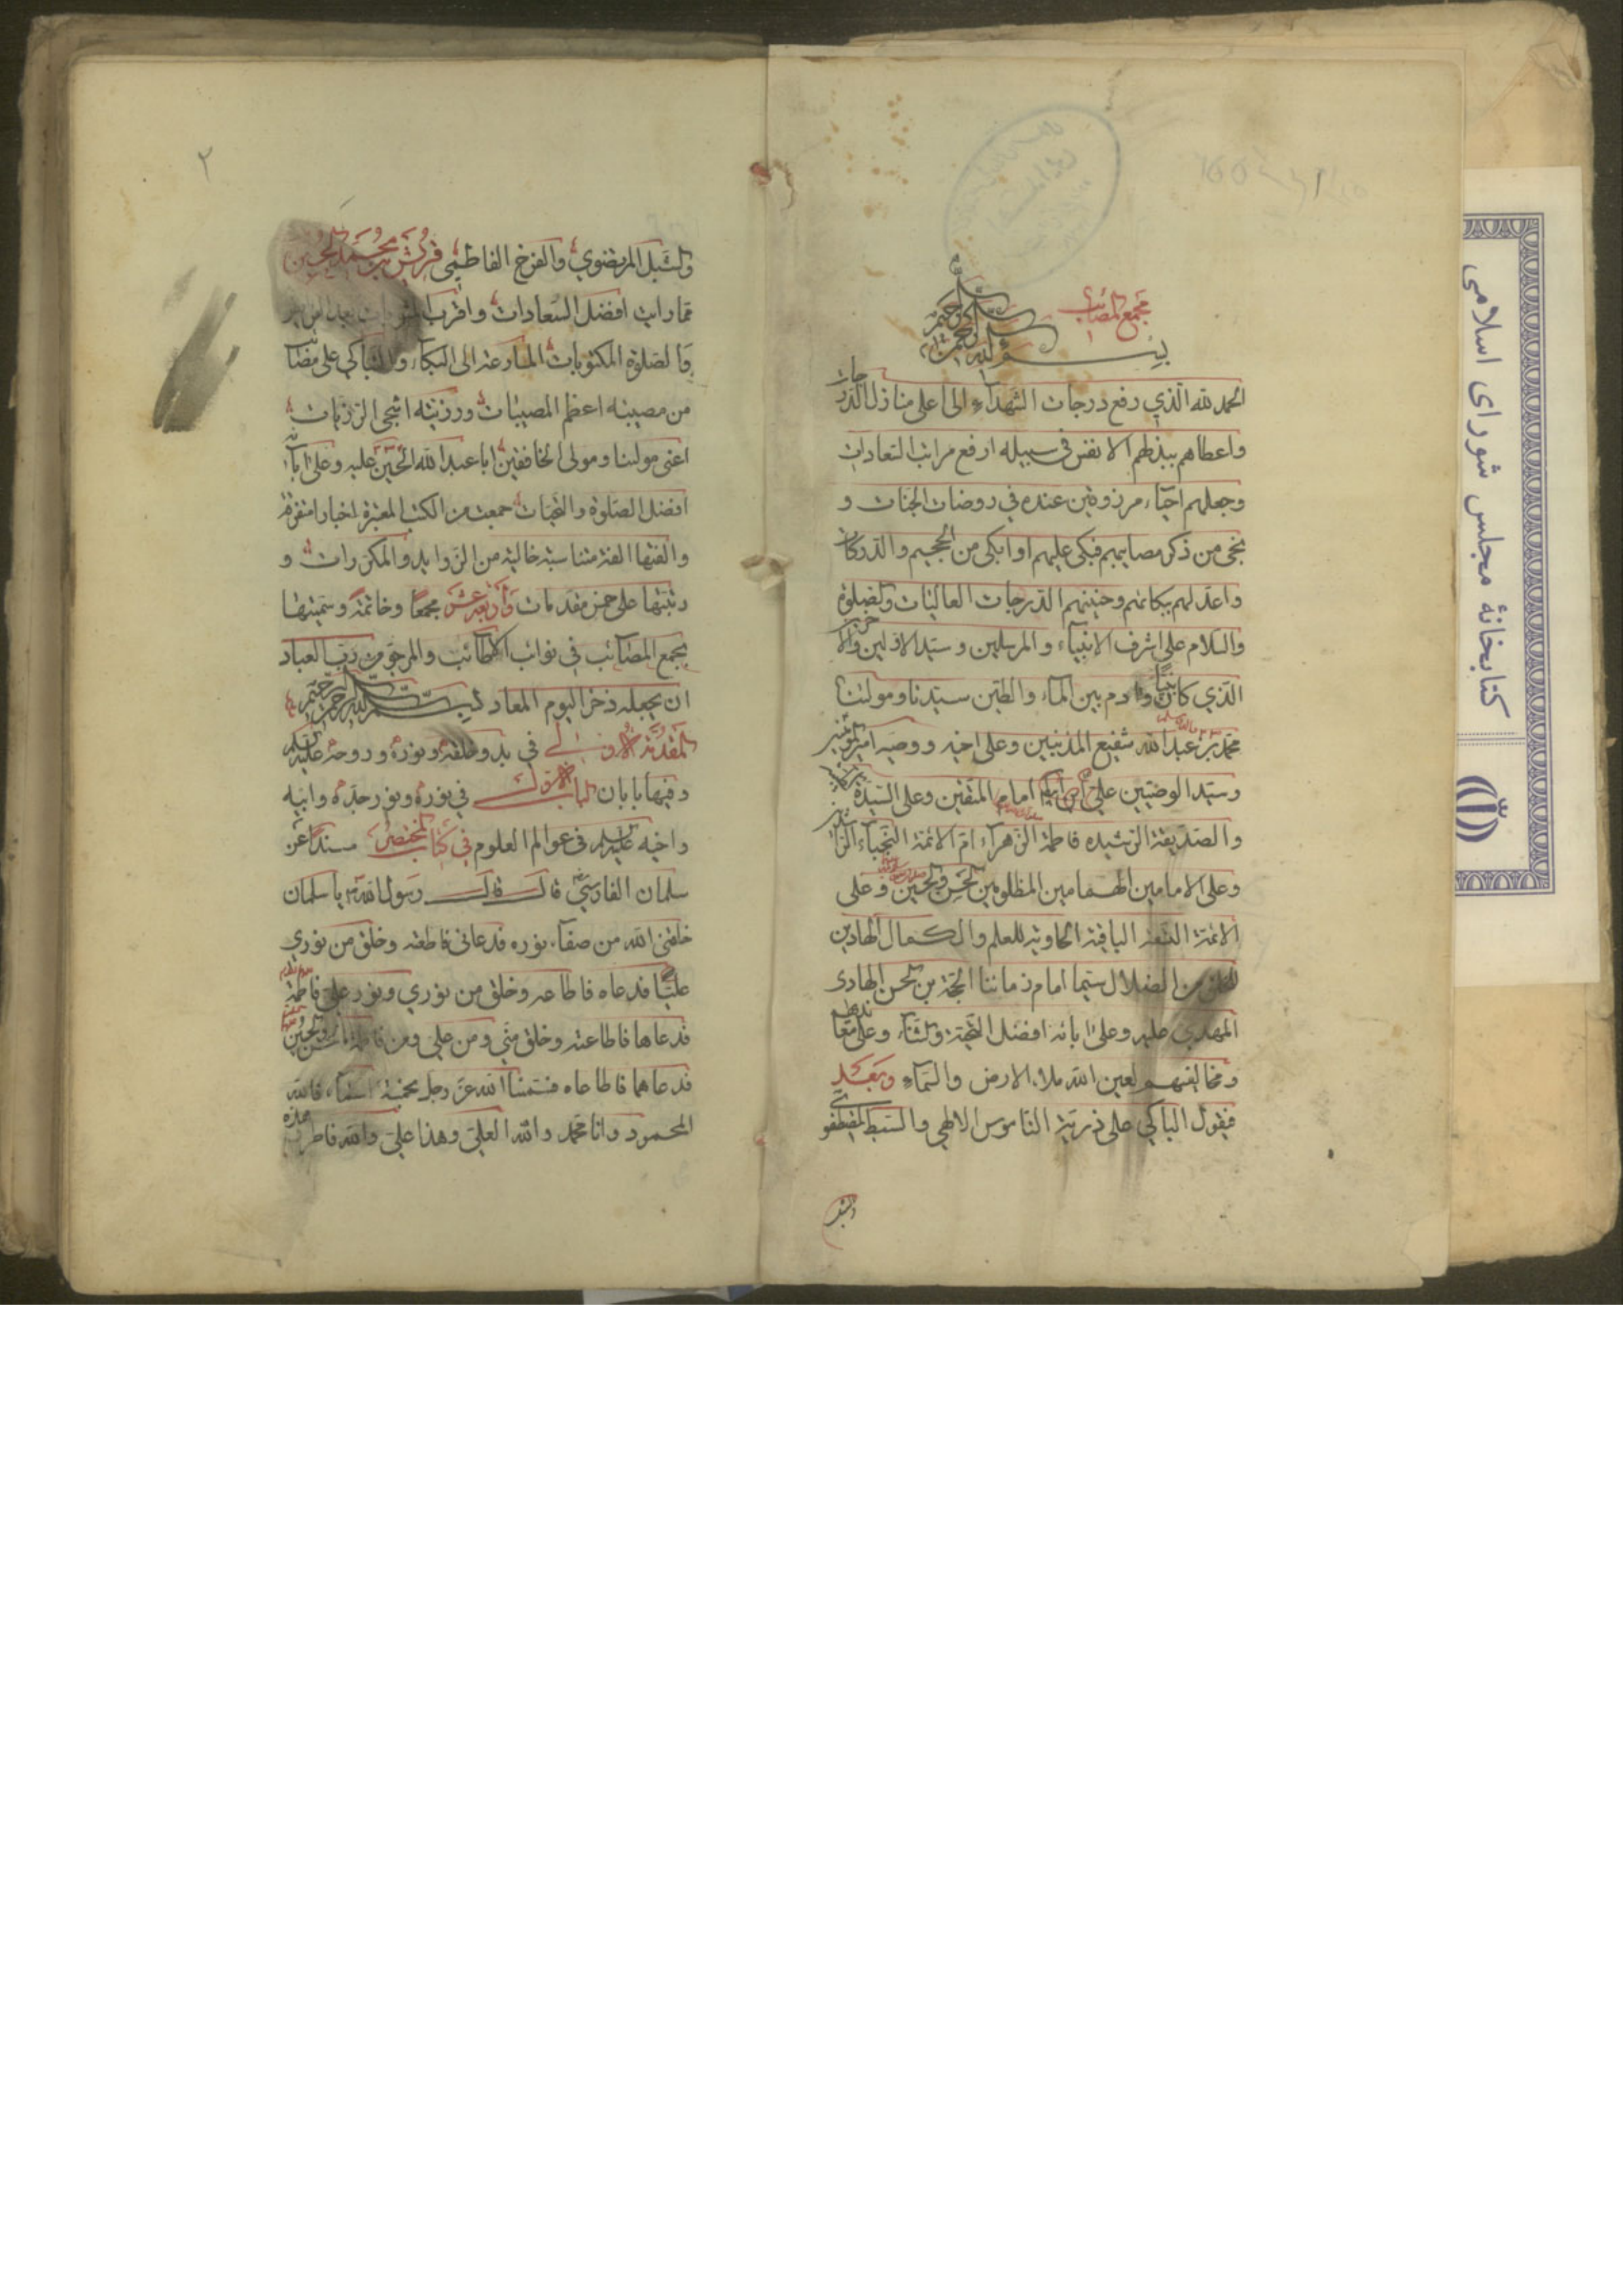 مجمع المصائب
بسم الله الرحمن الرحيم
الحمد لله الذي رفع درجات الشهدآء الى اعلى منازل الدرجات
واعطاهم ببذلهم الانفس في سبيله ارفع مراتب السعادات
وجعلهم احياء مرزوقين عنده في روضات الجنات و
نجى من ذكر مصايبهم فبكى عليهم او ابكى من الجحيم والدركات
واعد لهم ببكائهم وحنينهم الدرجات العاليات والصلوة
والسلام على اشرف الانبياء والمرسلين وسيد الاولين والآخرين
الذي كان نبيا وآدم بين الماء والطين سيدنا ومولينا
محمد بن عبد الله شفيع المذنبين وعلى اخيه ووصيه امير المؤمنين
وسيد الوصيين علي بن ابي امام المتقين وعلى السيدة
والصديقة الرشيده فاطمة الزهرآء ام الائمة النجباء
وعلى الامامين الهمامين المظلومين الحسن والحسين وعلى
الائمة التسعة الباقية الحاوية للعلم والكمال الهادين
من الضلال سيما امام زماننا الحجة بن الحسن الهادي
المهدي عليه وعلى ابائه افضل التحية والثناء وعلى
ومخالفيهم لعين الله ملاء الارض والسمآء وبعد
فيقول الباكي على ذرية الناموس الالهي والسبط المصطفوي
والشبل
٢
والشبل المرتضوي والفرخ الفاطمي محمد الحسين
لما رايت افضل السعادات واقرب
والصلوة المكتوبات المسارعة الى البكاء والتباكي على مصائب
من مصيبته اعظم المصيبات ورزيته اشجى الرزيات
اعنى مولينا ومولى الخافقين ابا عبد الله الحسين عليه وعلى ابائه
افضل الصلوة والتحيات جمعت من الكتب المعتبرة اخبار متفرقة
والفتها الفة متناسبة خالية من الزوايد والمكررات و
رتبتها على خمس مقدمات واربعة عشر مجمعا وخاتمة وسميتها
بمجمع المصآئب في نوائب الاطآئب والمرجو من رب العباد
ان يجعله ذخرا ليوم المعاد بسم الله الرحمن الرحيم
المقدمة الاولى في بدو خلقه ونوره وروحه عليه السلام
وفيها بابان الباب الاول في نوره ونور جده وابيه
واخيه عليه السلام في عوالم العلوم في كتاب المختصر مسندا عن
سلمان الفارسي قال قال رسول الله يا سلمان
خلقني الله من صفآء نوره فدعاني فاطعته وخلق من نوري
عليا فدعاه فاطاعه وخلق من نوري ونور علي فاطمة
فدعاها فاطاعته وخلق مني ومن علي ومن فاطمة الحسن والحسين
فدعاهما فاطاعاه فسمنا الله عز وجل بخمسة اسمآء فالله
المحمود وانا محمد والله العلي وهذا علي والله فاطر وهذه
کتابخانهٔ مجلس شورای اسلامی